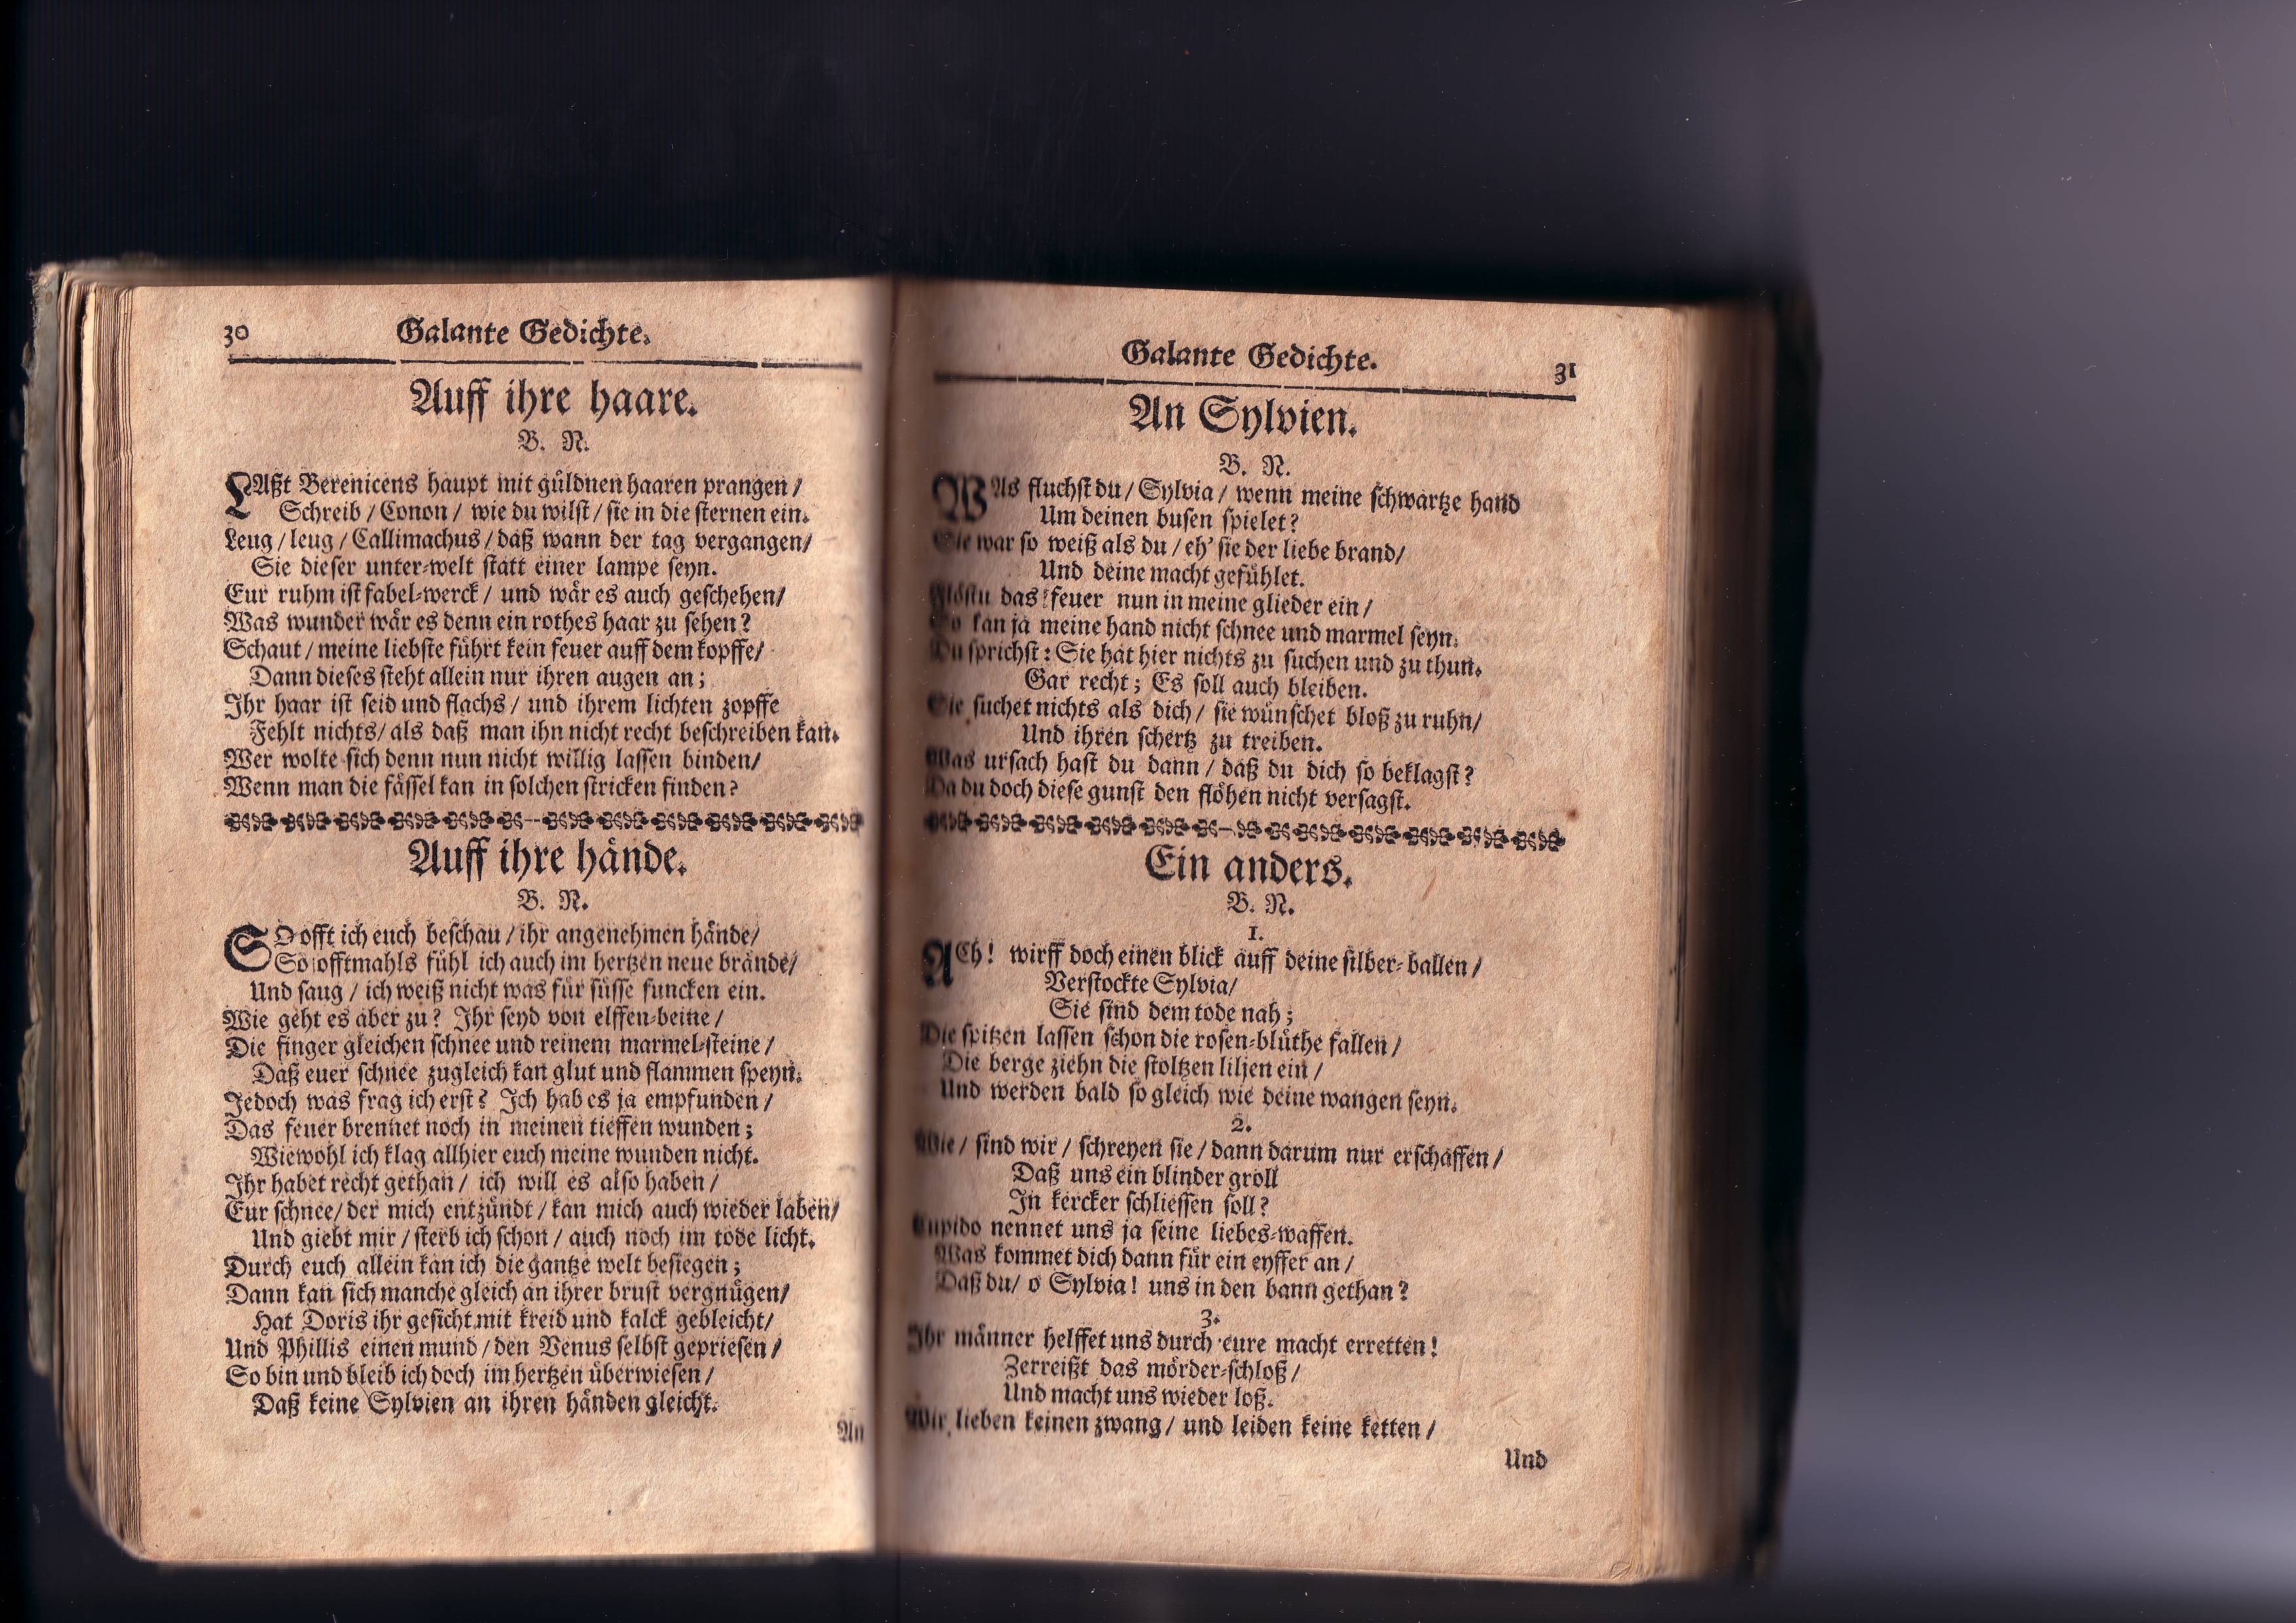 30 Galante Gedichte.
Auff ihre haare.
B. N.
LAßt Berenicens haupt mit güldnen haaren prangen/
Schreib/ Conon/ wie du wilst/ sie in die sternen ein.
Leug/ leug/ Callimachus/ daß wann der tag vergangen/
Sie dieser unter-welt statt einer lampe seyn.
Eur ruhm ist fabel-werck/ und wär es auch geschehen/
Was wunder wär es denn ein rothes haar zu sehen?
Schaut/ meine liebste führt kein feuer auff dem kopffe/
Dann dieses steht allein nur ihren augen an;
Ihr haar ist seid und flachs/ und ihrem lichten zopffe
Fehlt nichts/ als daß man ihn nicht recht beschreiben kan.
Wer wolte sich denn nun nicht willig lassen binden/
Wenn man die fässel kan in solchen stricken finden?
Auff ihre hände.
B. N.
SO offt ich euch beschau/ ihr angenehmen hände/
So offtmahls fühl ich auch im hertzen neue brände/
Und saug/ ich weiß nicht was für süsse funcken ein.
Wie geht es aber zu? Ihr seyd von elffen-beine/
Die finger gleichen schnee und reinem marmel-steine/
Daß euer schnee zugleich kan glut und flammen speyn.
Jedoch was frag ich erst? Ich hab es ja empfunden/
Das feuer brennet noch in meinen tieffen wunden;
Wiewohl ich klag allhier euch meine wunden nicht.
Ihr habet recht gethan/ ich will es also haben/
Eur schnee/ der mich entzündt/ kan mich auch wieder laben/
Und giebt mir/ sterb ich schon/ auch noch im tode licht.
Durch euch allein kan ich die gantze welt besiegen;
Dann kan sich manche gleich an ihrer brust vergnügen/
Hat Doris ihr gesicht mit kreid und kalck gebleicht/
Und Phillis einen mund/ den Venus selbst gepriesen/
So bin und bleib ich doch im hertzen überwiesen/
Daß keine Sylvien an ihren händen gleicht.
An
Galante Gedichte. 31
An Sylvien.
B. N.
WAs fluchst du/ Sylvia/ wenn meine schwartze hand
Um deinen busen spielet?
Sie war so weiß als du/ eh' sie der liebe brand/
Und deine macht gefühlet.
Flöstu das feuer nun in meine glieder ein/
So kan ja meine hand nicht schnee und marmel seyn.
Du sprichst: Sie hat hier nichts zu suchen und zu thun.
Gar recht; Es soll auch bleiben.
Sie suchet nichts als dich/ sie wünschet bloß zu ruhn/
Und ihren schertz zu treiben.
Was ursach hast du dann/ daß du dich so beklagst?
Da du doch diese gunst den flöhen nicht versagst.
Ein anders.
B. N.
1.
ACh! wirff doch einen blick auff deine silber-ballen/
Verstockte Sylvia/
Sie sind dem tode nah;
Die spitzen lassen schon die rosen-blüthe fallen/
Die berge ziehn die stoltzen liljen ein/
Und werden bald so gleich wie deine wangen seyn.
2.
Wie/ sind wir/ schreyen sie/ dann darum nur erschaffen/
Daß uns ein blinder groll
In kercker schliessen soll?
Cupido nennet uns ja seine liebes-waffen.
Was kommet dich dann für ein eyffer an/
Daß du/ o Sylvia! uns in den bann gethan?
3.
Ihr männer helffet uns durch eure macht erretten!
Zerreißt das mörder-schloß/
Und macht uns wieder loß.
Wir lieben keinen zwang/ und leiden keine ketten/
Und